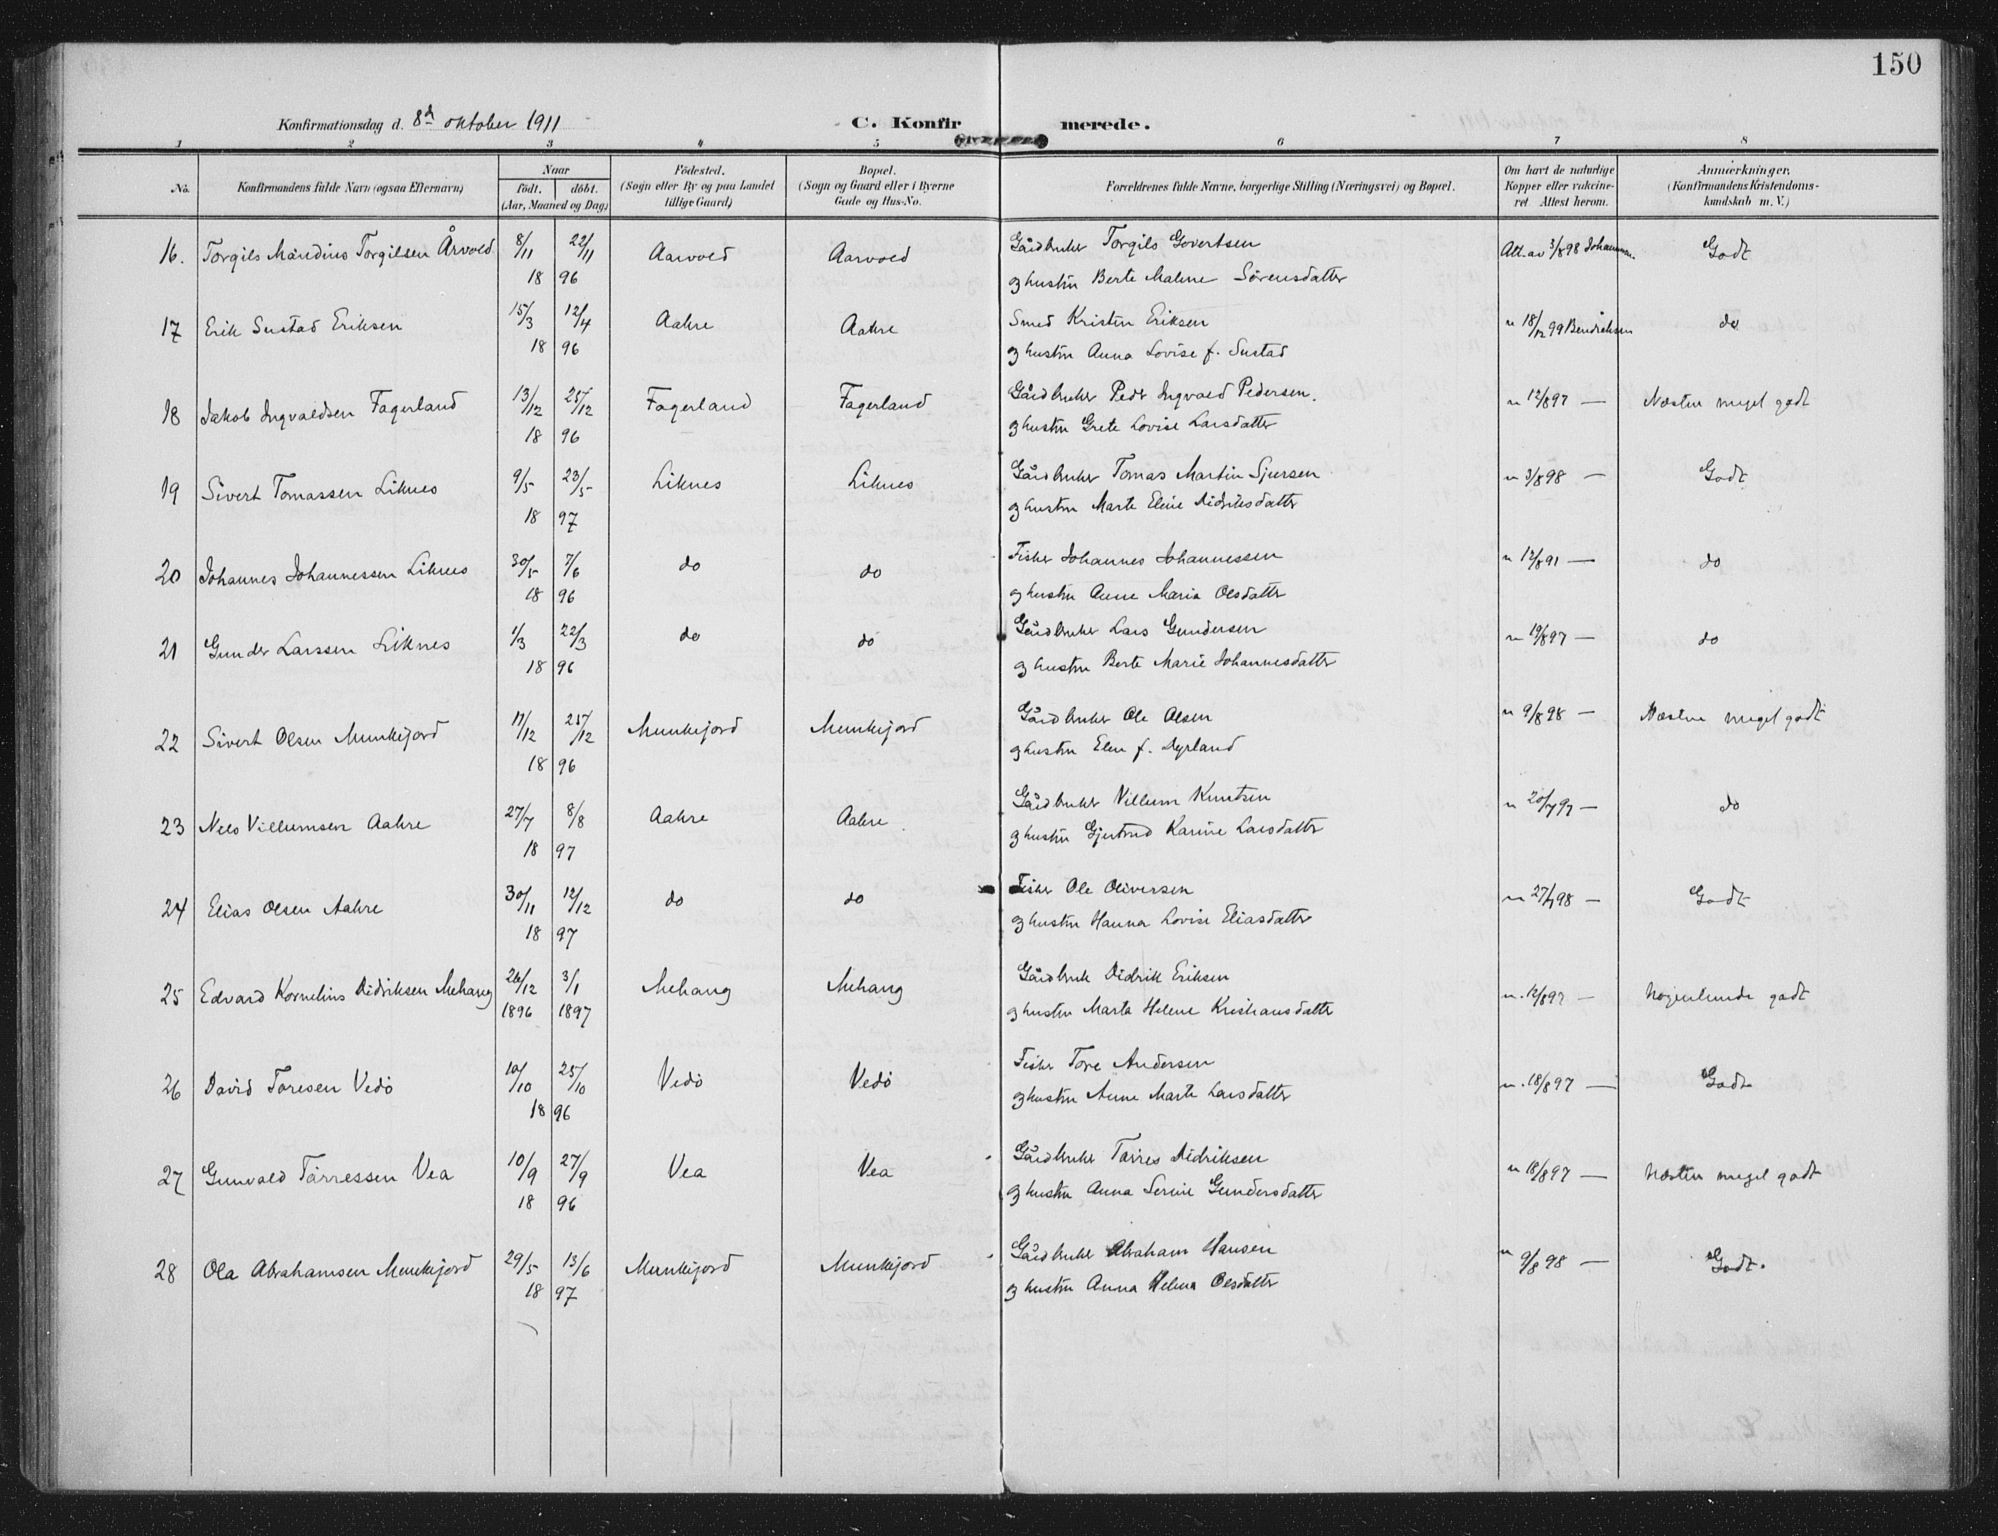 150
Konfirmationsdag d. 8d oktober 1911 C. Konfirmerede.
1 2 3 4 5 6 7 8
No. Konfirmandens fulde Navn (ogsaa Efternavn) Naar födt. döbt. (Aar, Maaned og Dag) Födested. (Sogn eller By og paa Landet tillige Gaard) Bopæl. (Sogn og Gaard eller i Byerne Gade og Hus-No. Forældrenes fulde Navne, borgerlige Stilling (Næringsvei) og Bopæl. Om havt de naturlige Kopper eller vakcineret Attest herom. Anmærkninger. (Konfirmandens Kristendomskundskab m. V.)
16. Torgils Mandius Torgilsen Årvold 8/11 22/11 Aarvold Aarvold Gårdbruker Torgils Govertsen Att. av 3/8 98 Johannesen Godt
18 96 og hustru Berte Malene Sørensdatter
17 Erik Sustad Eriksen 15/3 12/4 Aakre Aakre Smed Kristen Eriksen " 18/12 99 Bendiksen do
18 96 og hustru Anna Lovise f. Sustad
18 Jakob Ingvaldsen Fagerland 13/12 25/12 Fagerland Fagerland Gårdbruker Peder Ingvald Pedersen. " 12/8 97 — Næsten meget godt
18 96 og hustru Grete Lovise Larsdatter
19 Sivert Tomassen Liknes 9/5 23/5 Liknes Liknes Gårdbruker Tomas Martin Sjursen " 3/8 98 — Godt
18 97 og hustru Marte Eline Didriksdatter
20 Johannes Johannessen Liknes 30/5 7/6 do do Fisker Johannes Johannessen " 12/8 91 — do
18 96 og hustru Anne Maria Olsdatter
21 Gunder Larssen Liknes 1/3 22/3 do do Gårdbruker Lars Gundersen " 19/8 97 — do
18 96 og hustru Berte Marie Johannesdatter
22 Sivert Olsen Munkejord 11/12 25/12 Munkejord Munkejord Gårdbruker Ole Olsen " 9/8 98 — Næsten meget godt
18 96 og hustru Elen f. Dyrland
23 Nils Villumsen Aakre 27/7 8/8 Aakre Aakre Gårdbruker Villum Knutsen " 20/7 97 — do
18 97 og hustru Gjertrud Karine Larsdatter
24 Elias Olsen Aakre 30/11 12/12 do do Fisker Ole Oliversen " 27/7 98 — Godt
18 97 og hustru Hanna Lovise Eliasdatter
25 Edvard Kornelius Didriksen Mehang 26/12 3/1 Mehang Mehang Gårdbruk Didrik Eriksen " 12/8 97 — Nogenlunde godt
1896 1897 og hustru Marta Helene Kristiansdatter
26 David Toresen Vedö 10/10 25/10 Vedö Vedö Fisker Tore Andersen " 18/8 97 — Godt
18 96 og hustru Anne Marte Larsdatter
27 Gunvald Tørressen Vea 10/9 27/9 Vea Vea Gårdbruker Tørres Didriksen " 18/8 97 — Næsten meget godt
18 96 og hustru Anna Serine Gundersdatter
28 Ola Abrahamsen Munkejord 29/5 13/6 Munkejord Munkejord Gårdbruker Abraham Hansen " 9/8 98 — Godt.
18 97 og hustru Anna Helena Olsdatter